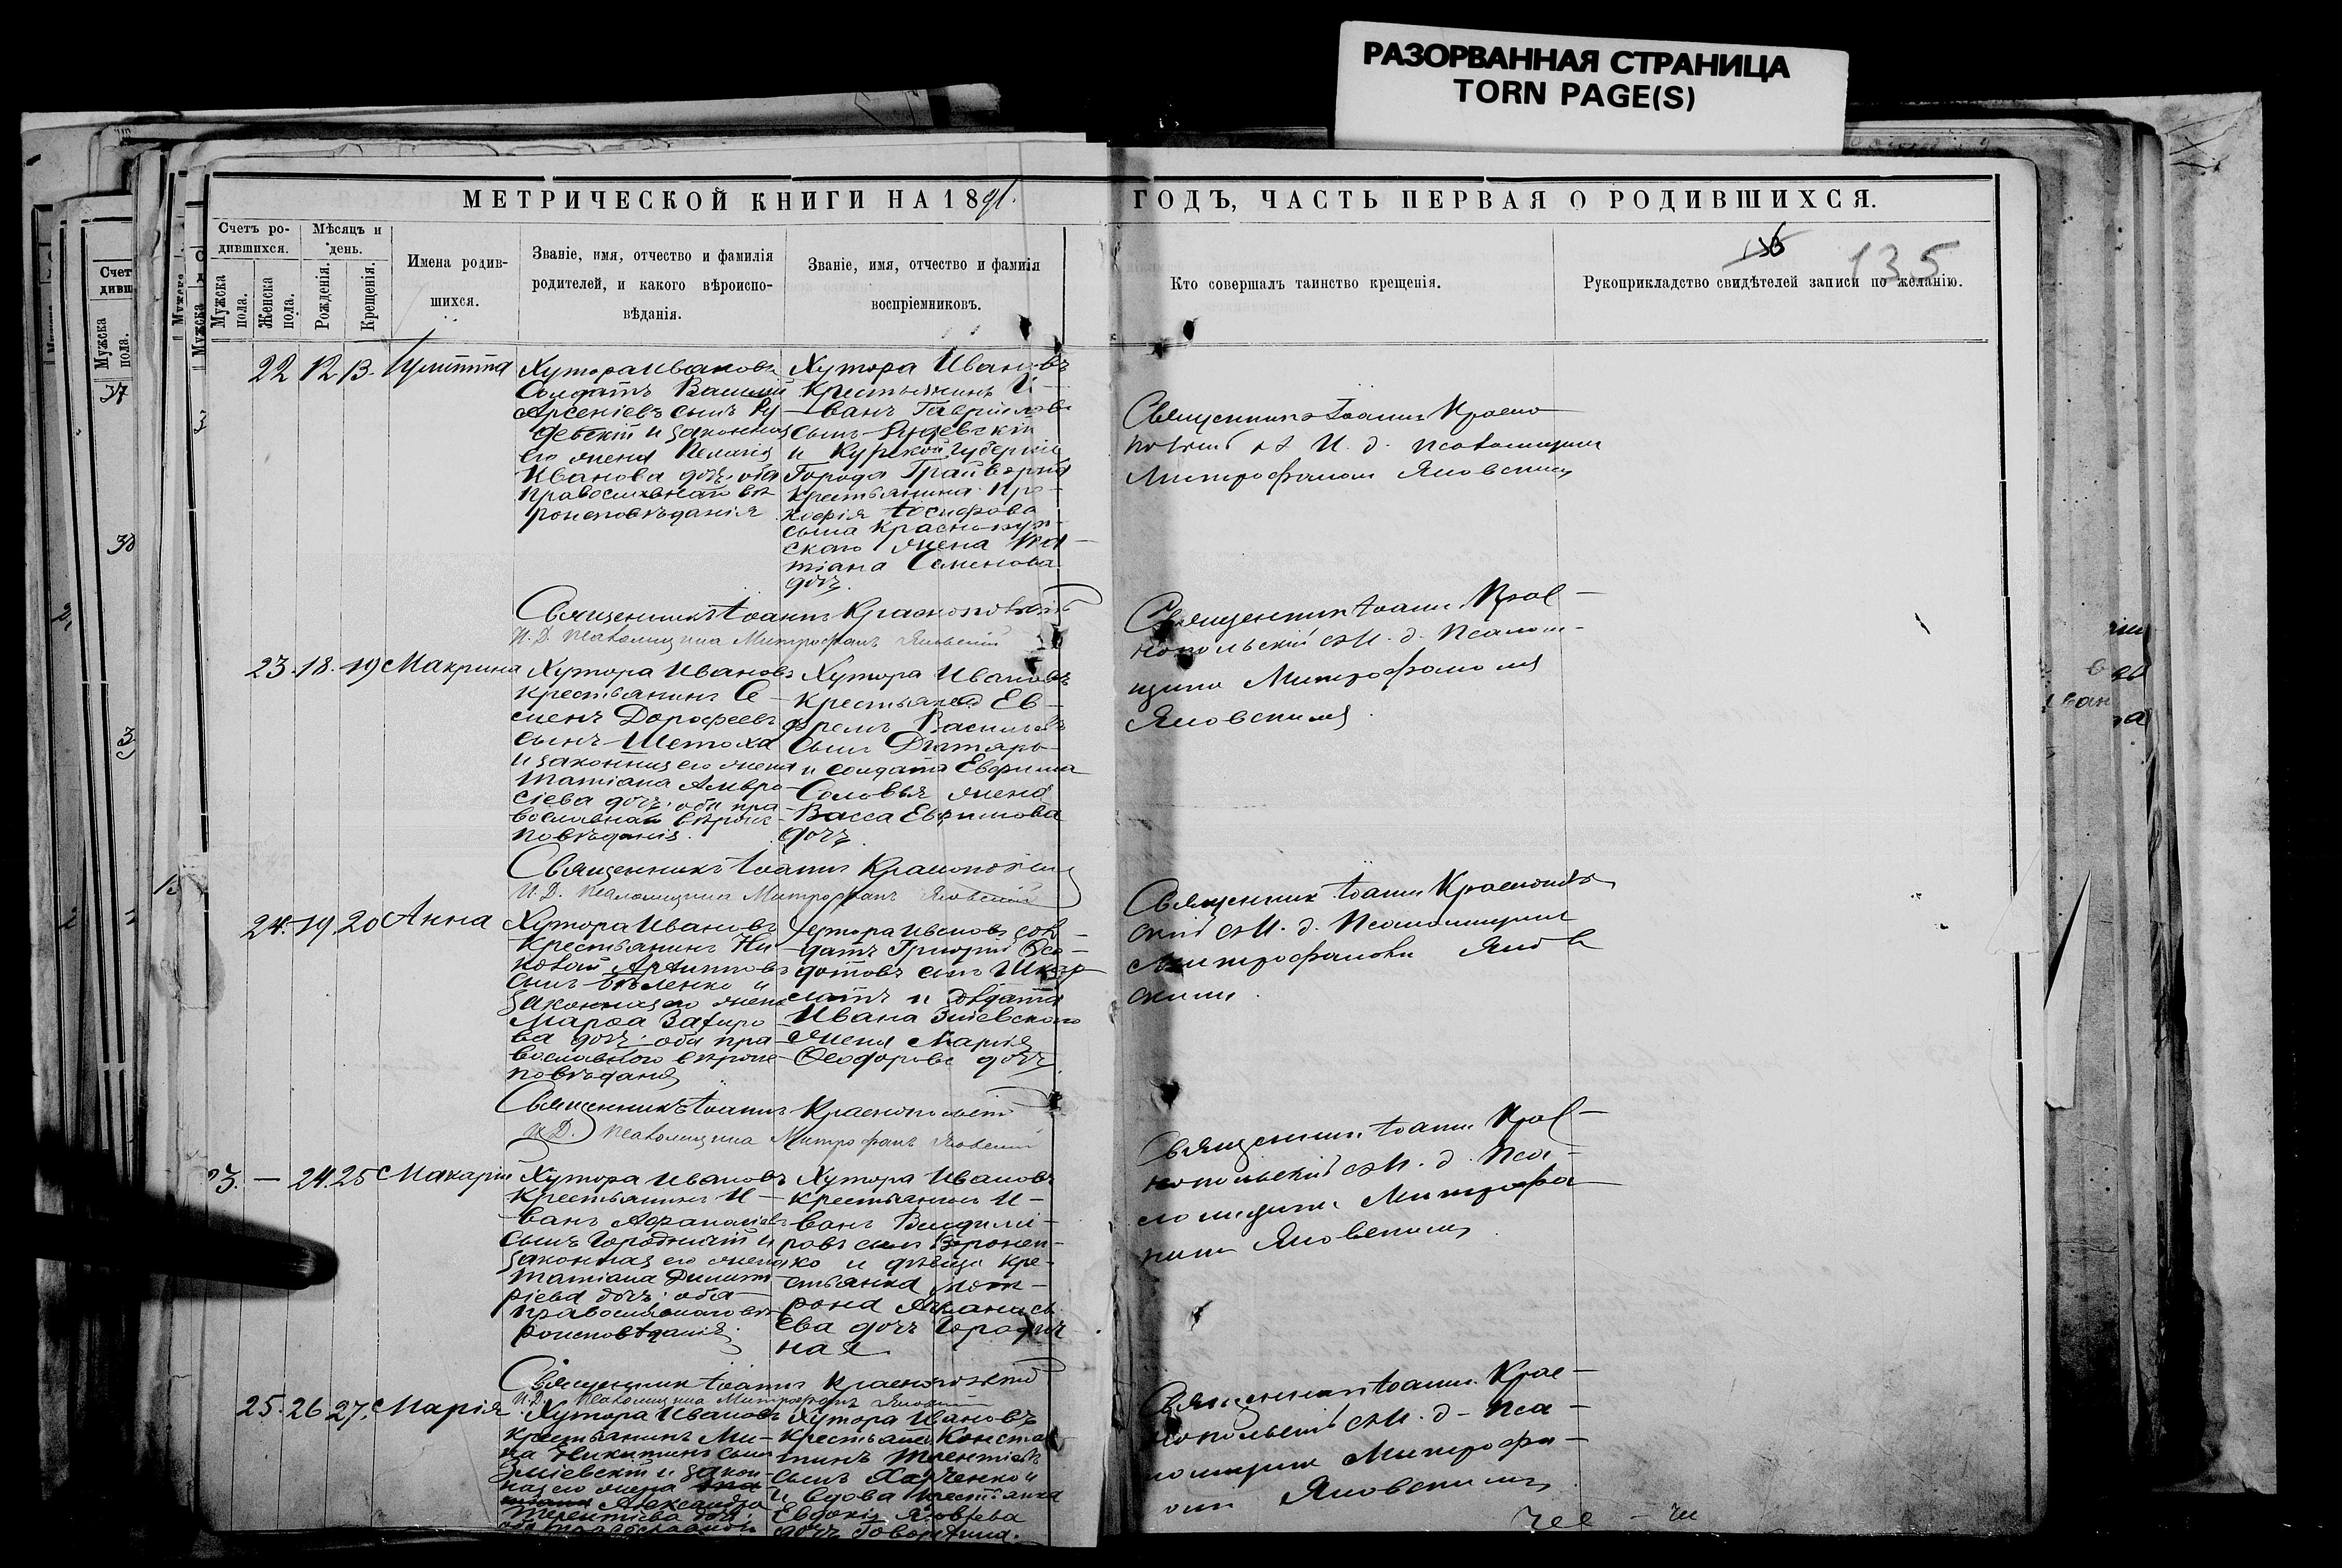 РАЗОРВАННАЯ СТРАНИЦА
TORN PAGE(S)
МЕТРИЧЕСКОЙ КНИГИ НА 1891.
ГОДЪ, ЧАСТЬ ПЕРВАЯ О РОДИВШИХСЯ.
135
Счетъ ро-
дившихся.
Мужска пола.
Женска пола.
Мѣсяцъ и
день.
Рожденія.
Крещенія.
Имена родив-
шихся.
Званіе, имя, отчество и фамилія
родителей, и какого вѣроиспо-
вѣданія.
Званіе, имя, отчество и фамилія
воспріемниковъ.
Кто совершалъ таинство крещенія.
Рукоприкладство свидѣтелей записи по желанію.
22 12 13. Іулитта
Хутора Ивановъ
Солдатъ Василій
Арсеніевъ сынъ Ру
девскій и законная
его жена Пелагія
Иванова дочь; оба
православнаго вѣ
роисповѣданія
Хутора Ивановъ
Крестьянинъ И-
ванъ Гавріиловъ
сынъ Рудевскій
и Курской губерніи
Города Грайворона
крестьянина Про-
кофія Іосифова
сына Краснокут-
скаго жена Та-
тіана Семенова
дочь.
Священникъ Іоаннъ Краснопольскій
И. Д. Псаломщика Митрофанъ Яновскій
Священникъ Іоаннъ Красно
польскій съ И. д. псаломщика
Митрофаномъ Яновскимъ
23. 18. 19 Макрина
Хутора Ивановъ
крестьянинъ Се-
менъ Дорофеевъ
сынъ Шетоха
и законная его жена
Татіана Амвро-
сіева дочь; оба пра-
вославнаго вѣроис-
повѣданія.
Хутора Ивановъ
крестьянинъ Еф-
ремъ Васильевъ
сынъ Дегтяро
и солдата Евфима
Соловья жена
Васса Евфимова
дочь.
Священникъ Іоаннъ Краснопольскій
И. Д. Псаломщика Митрофанъ Яновскій
Священникъ Іоаннъ Крас-
нопольскій съ И. д. Псалом-
щика Митрофаномъ
Яновскимъ.
24. 19. 20 Анна
Хутора Ивановъ
Крестьянинъ Ни
сынъ Бѣленко и
законная его жена
Марѳа
ва дочь; оба пра
вославнаго вѣроис
повѣданія
Хутора Ивановъ сол-
датъ Григорій Ѳео-
дотовъ сынъ
и солдата
Ивана Зміевского
жена Марія
Ѳеодорова дочь.
Священникъ Іоаннъ Краснопольскій
И. Д. Псаломщика Митрофанъ Яновскій
Священникъ Іоаннъ Краснополь
скій съ И. д. Псаломщика
Митрофаномъ Янов
скимъ.
23. — 24. 25 Макарій
Хутора Ивановъ
Крестьянинъ И-
ванъ Аѳанасіевъ
сынъ Городній и
законная его жена
Татіана Димит
ріева дочь; оба
православнаго вѣ
роисповѣданія.
Хутора Ивановъ
крестьянинъ И-
ванъ Владимі-
ровъ сынъ Воронен-
ко и дѣвица кре-
стьянка Мат-
рона Аѳанась
ева дочь Город
ная.
Священникъ Іоаннъ Краснопольскій
И. Д. Псаломщика Митрофанъ Яновскій
Священникъ Іоаннъ Крас-
нопольскій съ И. д. Пса-
ломщика Митрофа
номъ Яновскимъ
25. 26. 27. Марія
Хутора Ивановъ
крестьянинъ Ми-
на Никитинъ сынъ
Зміевскій и закон-
ная его жена
Александра
Терентіева дочь;
оба православнаго
Хутора Ивановъ
крестьянинъ Констан
тинъ Терентіевъ
сынъ Харченко и
и вдова крестьянка
Евдокія Яковлева
дочь
Священникъ Іоаннъ Крас-
нопольскій съ И. д. Пса-
ломщика Митрофа-
номъ Яновскимъ